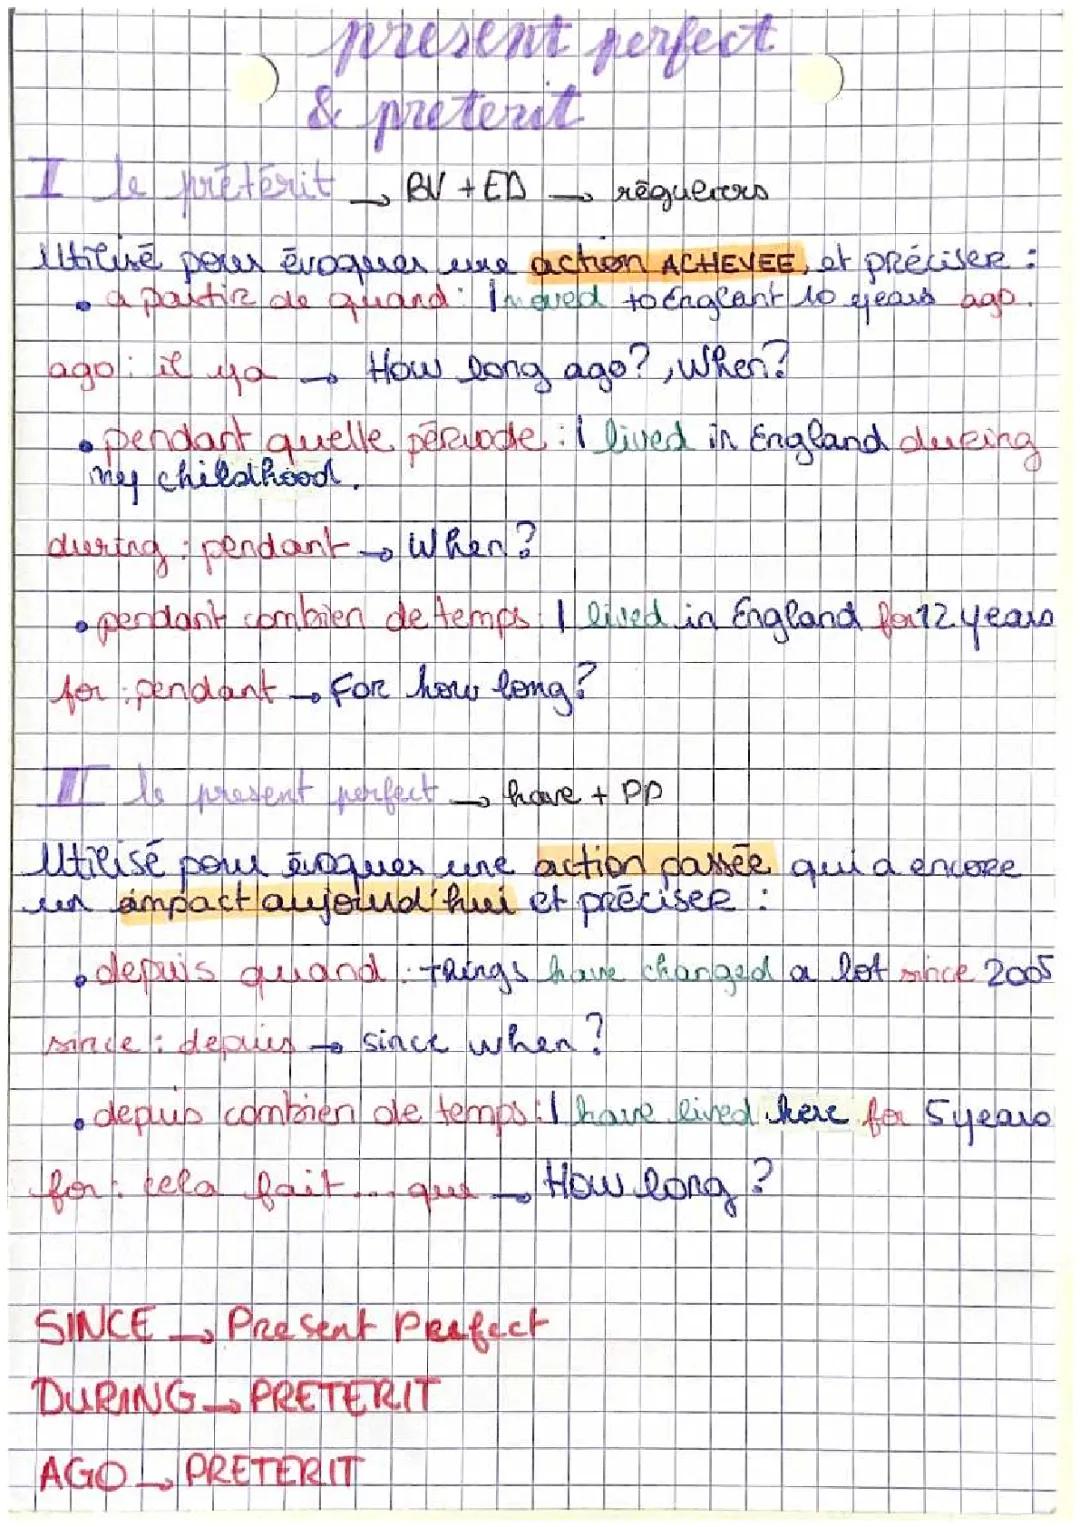 present perfect
& preterit
I le prétérit → BV + ED → réguliers
Utilisé pour évoquer une action ACHEVEE, et préciser :
• à partir de quand : I moved to Englant 10 years ago.
ago : il ya → How long ago?, When?
• pendant quelle période : I lived in England during
my childhood.
during : pendant → When?
• pendant combien de temps : I lived in England for 12 years
for : pendant → For how long?
II le present perfect → have + PP
Utilisé pour évoquer une action passée qui a encore
un impact aujourd'hui et préciser :
• depuis quand : Things have changed a lot since 2005
since : depuis → since when ?
• depuis combien de temps : I have lived here for 5 years
for : cela fait ... que → How long ?
SINCE → Present Perfect
DURING → PRETERIT
AGO → PRETERIT